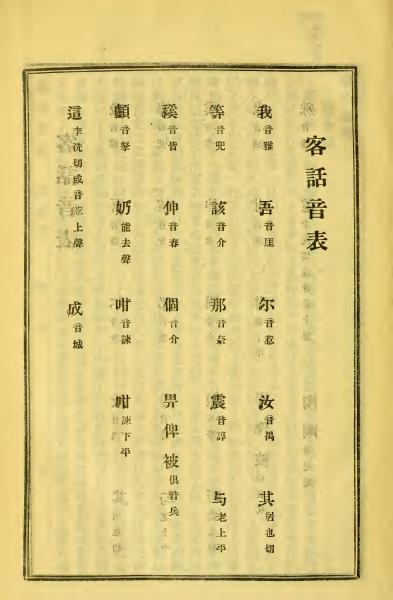 客話音表
我音雅 吾音厓 尔音惹 汝音禺 其居也切
等音兜 該音介 那音奈 震音諄 与老上平
奚音皆 伸音春 個音介 畀俾被俱音兵
音拏 奶能去聲 咁音諫 咁諫下平
這李洗切或音惹上聲 成音城